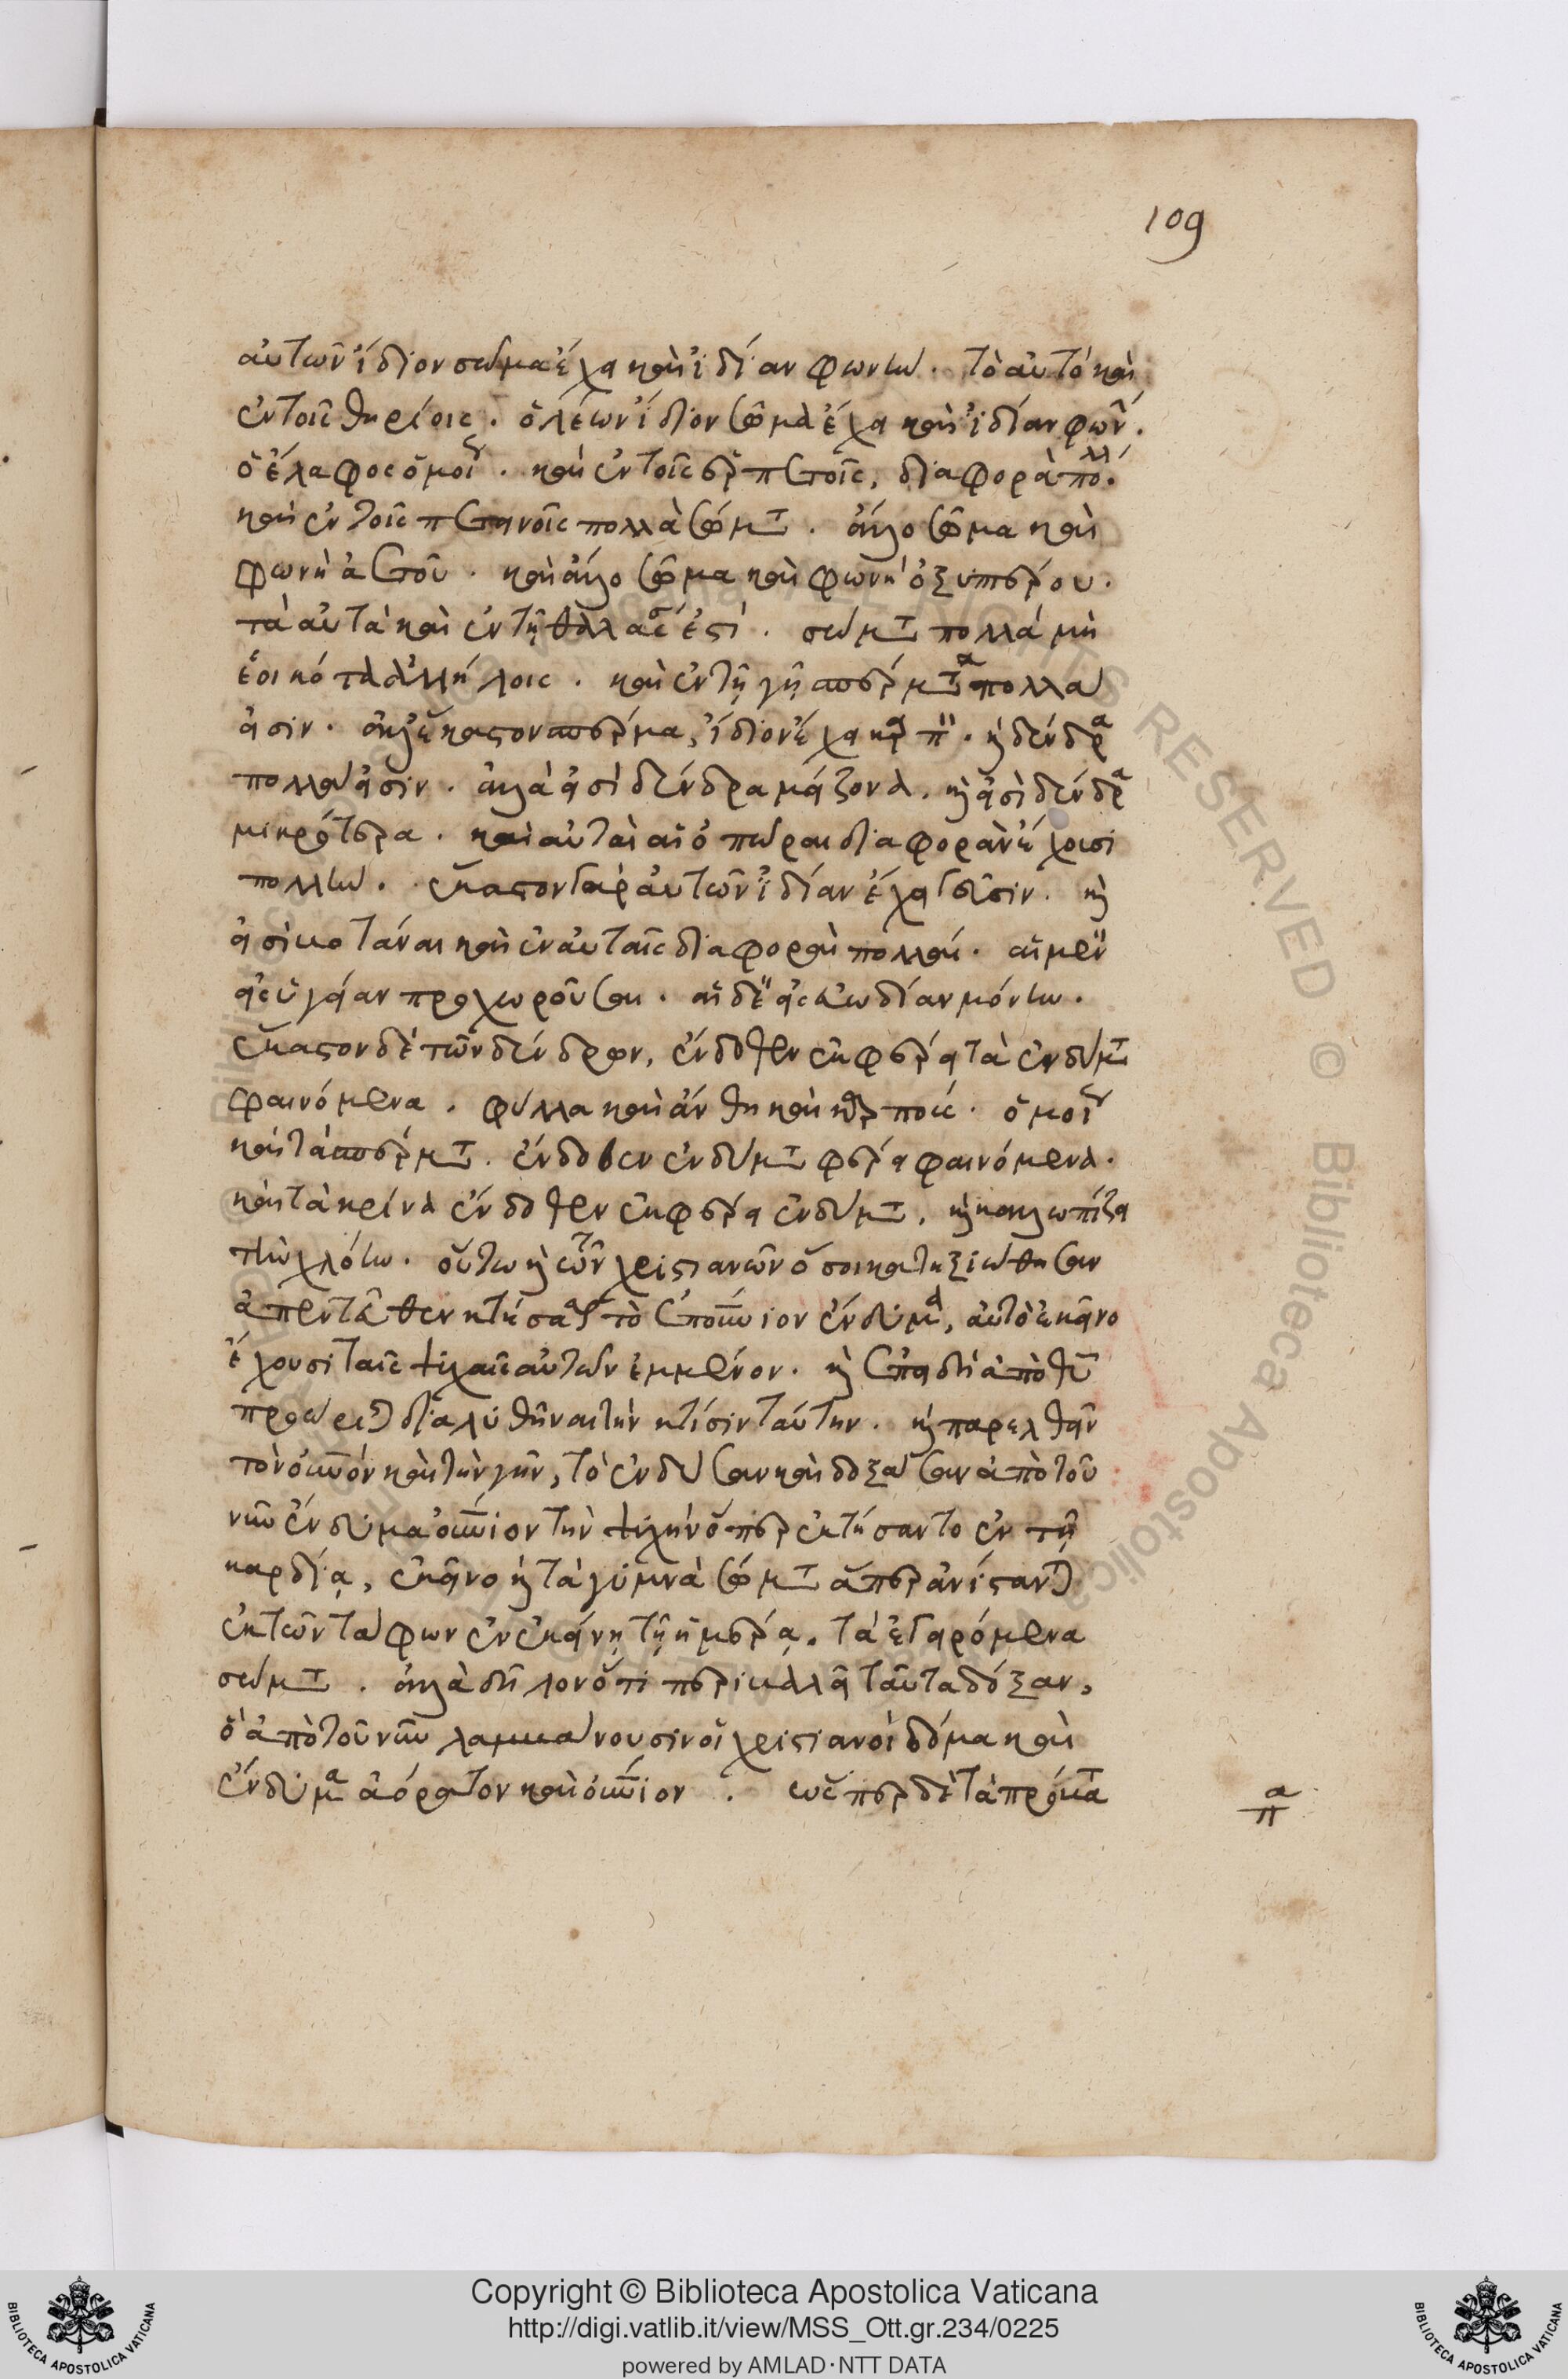 109
αὐτῶν ἴδιον σῶμα ἔχει καὶ ἰδίαν φωνήν. τὸ αὐτὸ καὶ
ἐν τοῖς θηρίοις. ὁ λέων ἴδιον σῶμα ἔχει καὶ ἰδίαν φων.
ὁ ἔλαφος ὁμοί. καὶ ἐν τοῖς ἑρπετοῖς, διαφορὰ πολλ.
καὶ ἐν τοῖς πετεινοῖς πολλὰ σώμτ. ἄλλο σῶμα καὶ
φωνὴ ἀετοῦ. καὶ ἄλλο σῶμα καὶ φωνὴ ὀξυπτέρου.
τὰ αὐτὰ καὶ ἐν τῇ θαλασ ἐστί. σώμτ πολλὰ μὴ
ἐοικότα ἀλλήλοις. καὶ ἐν τῇ γῇ σπέρμτα πολλὰ
εἰσιν. ἀλλ' ἕκαστον σπέρμα, ἴδιον ἔχει καρπ. κ δένδρα
πολλὰ εἰσιν. ἀλλὰ εἰσὶ δένδρα μείζονα. κ εἰσὶ δένδρα
μικρότερα. καὶ αὐταὶ αἱ ὀπῶραι διαφορὰν ἔχουσι
πολλήν. ἕκαστον γὰρ αὐτῶν ἰδίαν ἔχει γεῦσιν. κ
εἰσὶ βοτάναι καὶ ἐν αὐταῖς διαφοραὶ πολλαί. αἱ μὲν
εἰς ὑγείαν προχωροῦσαι. αἱ δὲ εἰς εὐωδίαν μόνην.
ἕκαστον δὲ τῶν δένδρων, ἔνδοθεν ἐκφέρει τὰ ἐνδύμτ
φαινόμενα. φύλλα καὶ ἄνθη καὶ καρπούς. ὁμοί
καὶ τὰ σπέρμτ. ἔνδοθεν ἐνδύμτ φέρει φαινόμενα.
καὶ τὰ κρίνα ἔνδοθεν ἐκφέρει ἐνδύμτ, κ καλλωπίζει
τὴν χλόην. οὕτω κ τῶν χριστιανῶν ὅσοι κατηξιώθησαν
ἀπεντεῦθεν κτήσασ τὸ ἐπουνιον ἔνδυμα, αὐτὸ ἐκεῖνο
ἔχουσι ταῖς ψυχαῖς αὐτῶν ἐμμένον. κ ἐπειδὴ ἀπὸ θυ
προώρισ διαλυθῆναι τὴν κτίσιν ταύτην. κ παρελθεῖν
τὸν οὐνὸν καὶ τὴν γῆν, τὸ ἐνδῦσαν καὶ δοξάσαν ἀπὸ τοῦ
νῦν ἔνδυμα οὐνιον τὴν ψυχὴν ὅπερ ἐκτήσαντο ἐν τῇ
καρδίᾳ, ἐκεῖνο κ τὰ γυμνὰ σώμτ ἅπερ ἀνίσταντ
ἐκ τῶν τάφων ἐν ἐκείνῃ τῇ ἡμέρᾳ. τὰ ἐγειρόμενα
σώμτ. ἀλλὰ δῆλον ὅτι περιβαλεῖ ταῦτα δόξαν,
ὃ ἀπὸ τοῦ νῦν λαμβάνουσιν οἱ χριστιανοὶ δόμα καὶ
ἔνδυμα ἀόρατον καὶ οὐνιον. ὥσπερ δὲ τὰ πρόβατ
α
π
Copyright © Biblioteca Apostolica Vaticana
http://digi.vatlib.it/view/MSS_Ott.gr.234/0225
powered by AMLAD·NTT DATA